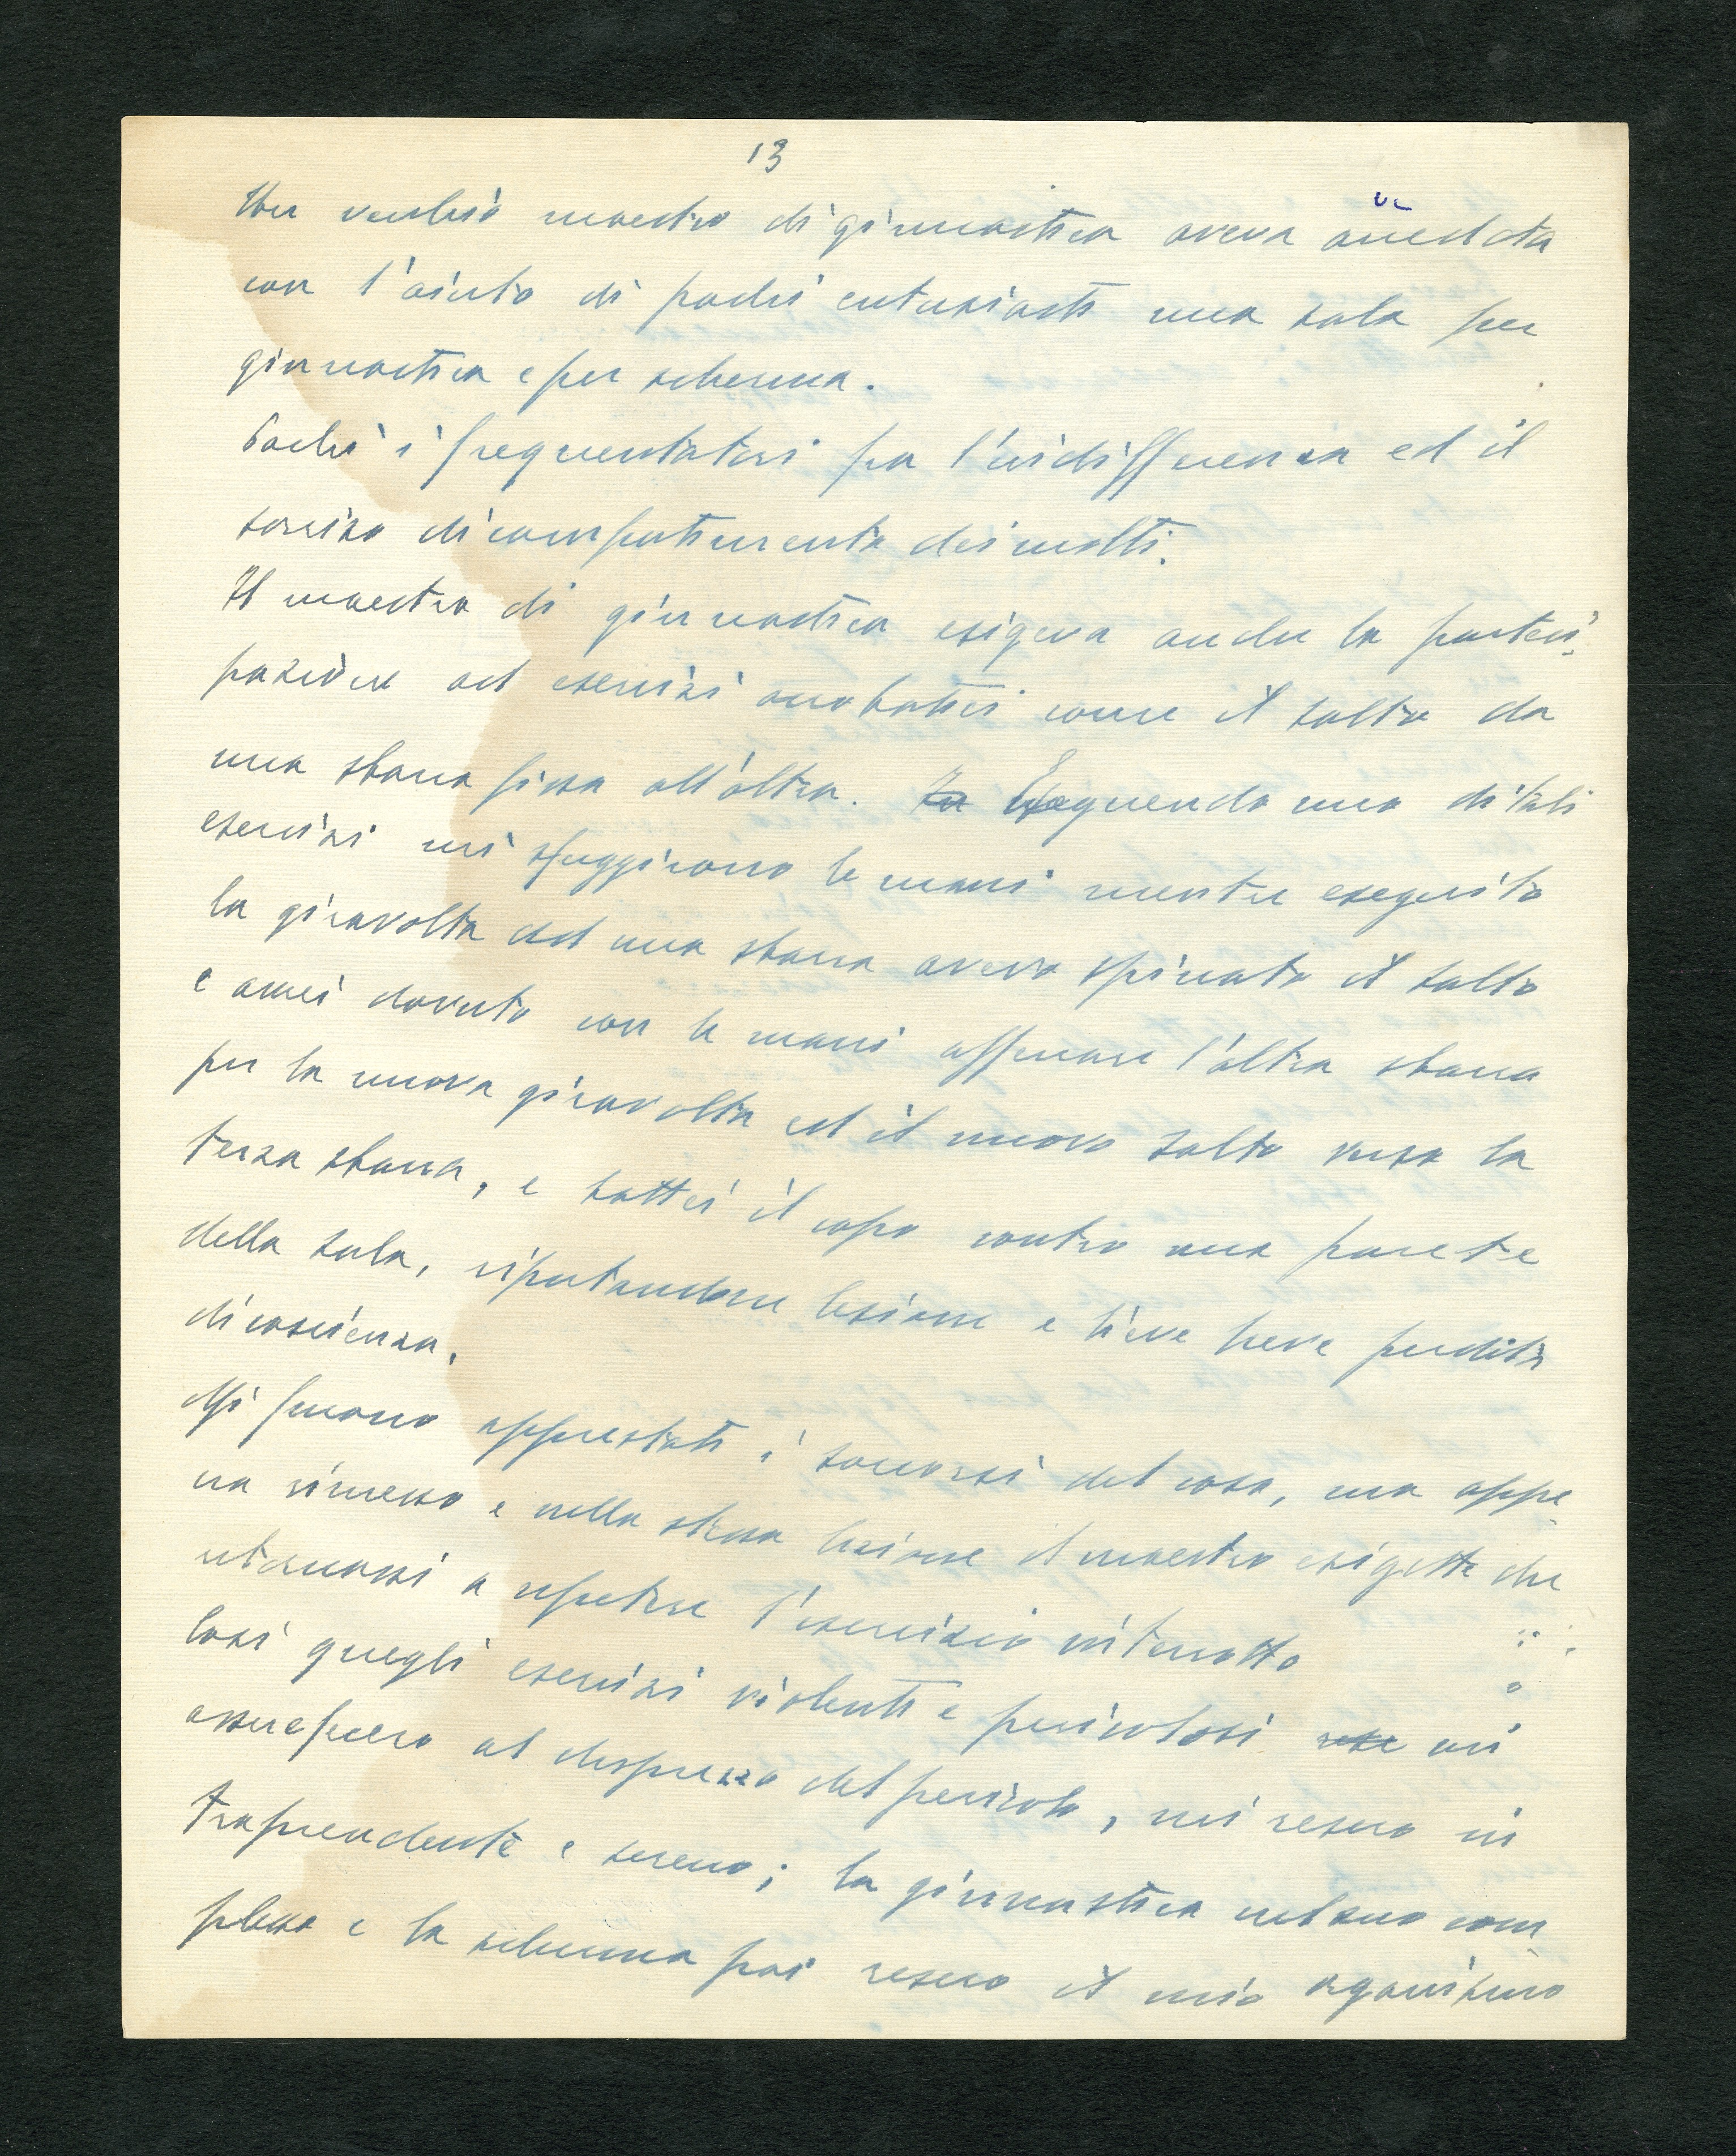 13
Un vecchio maestro di ginnastica aveva arredata
con l'aiuto di padri entusiasti una sala per
ginnastica e per scherma.
Pochi i frequentatori fra l'indifferenza ed il
sorriso di compatimento dei molti.
Il maestro di ginnastica esigeva anche la parteci-
pazione ad esercizi acrobatici come il salto da
una sbarra fissa all'altra. Eseguendo uno di tali
esercizi mi sfuggirono le mani mentre eseguito
la giravolta ad una sbarra avevo spiccato il salto
e avrei dovuto con le mani afferrare l'altra sbarra
per la nuova giravolta ed il nuovo salto verso la
terza sbarra, e battei il capo contro una parete
della sala, riportandone lesione e lieve breve perdita
di coscienza.
Mi furono apprestati i soccorsi del caso, ma appe-
na rimesso e nella stessa lezione il maestro esigette che
ritornassi a ripetere l'esercizio interrotto
Così quegli esercizi violenti e pericolosi mi
assuefecero al disprezzo del pericolo, mi resero in
traprendente e sereno; la ginnastica nel suo com-
plesso e la scherma poi resero il mio organismo